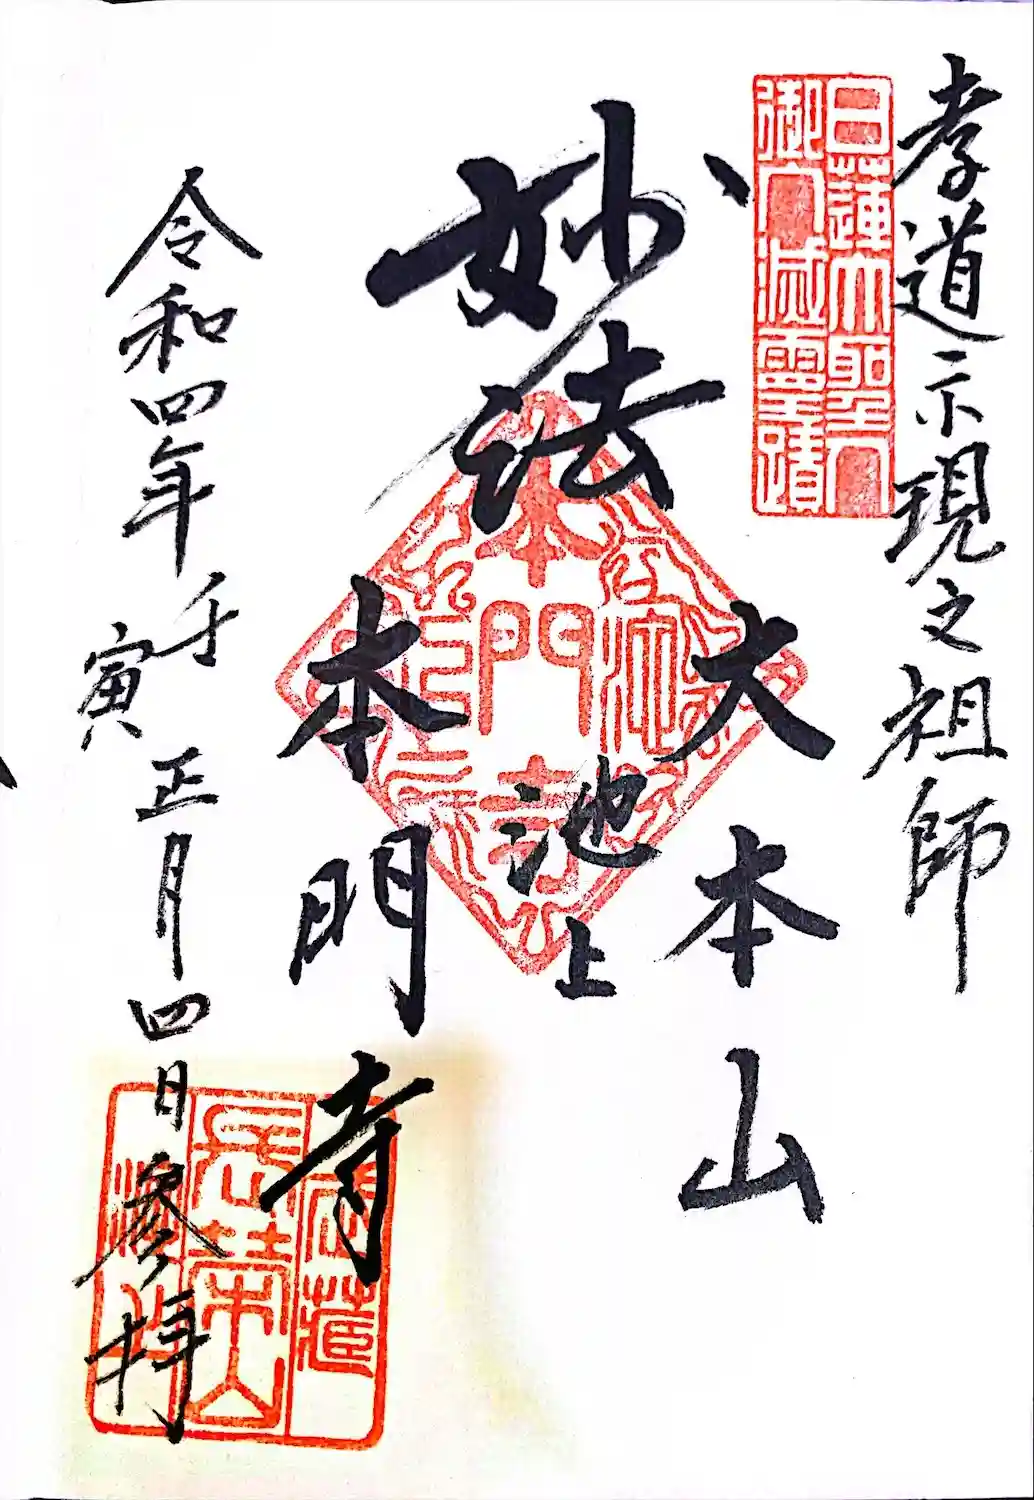 孝道示現之祖師
日蓮大聖人
御入滅霊蹟
大本山
妙法
池上
本門寺
本門寺
長栄山
令和四年壬寅正月四日参拝